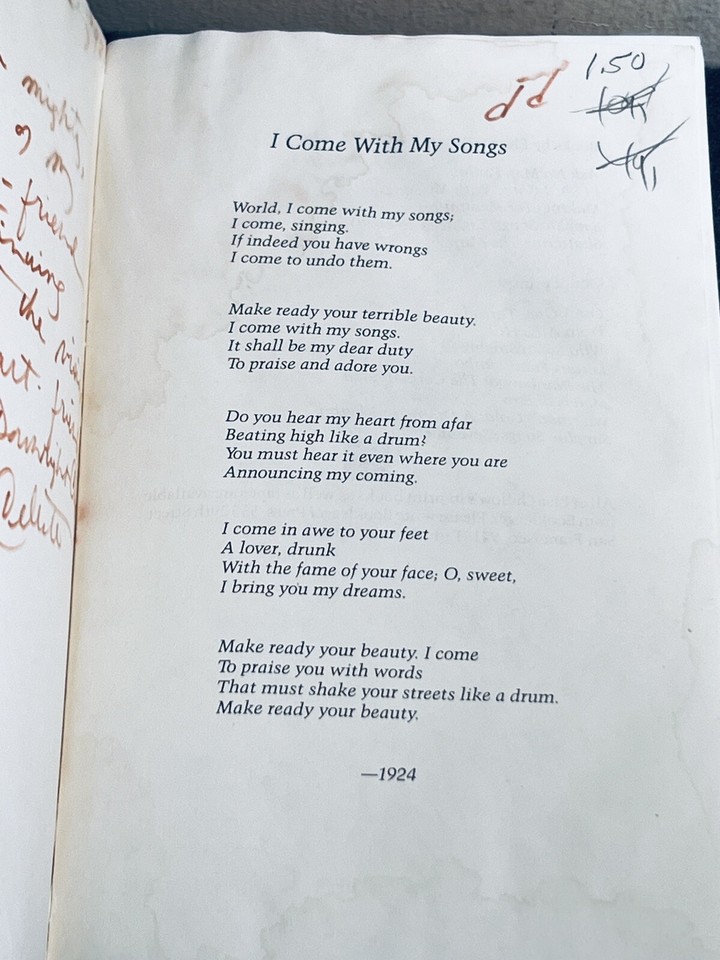 might,
of my
friend
the
Dellita
dd
1.50
I Come With My Songs
World, I come with my songs;
I come, singing.
If indeed you have wrongs
I come to undo them.
Make ready your terrible beauty.
I come with my songs.
It shall be my dear duty
To praise and adore you.
Do you hear my heart from afar
Beating high like a drum?
You must hear it even where you are
Announcing my coming.
I come in awe to your feet
A lover, drunk
With the fame of your face; O, sweet,
I bring you my dreams.
Make ready your beauty. I come
To praise you with words
That must shake your streets like a drum.
Make ready your beauty.
—1924